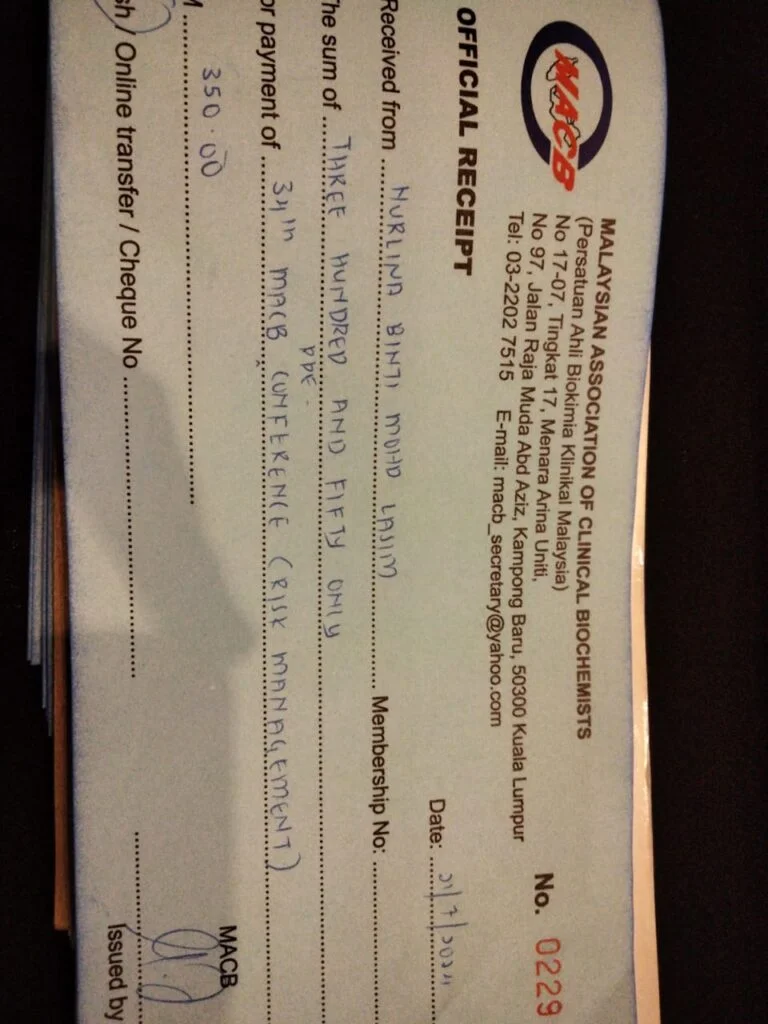 MACB
MALAYSIAN ASSOCIATION OF CLINICAL BIOCHEMISTS
(Persatuan Ahli Biokimia Klinikal Malaysia)
No 17-07, Tingkat 17, Menara Arina Uniti,
No 97, Jalan Raja Muda Abd Aziz, Kampong Baru, 50300 Kuala Lumpur
Tel: 03-2202 7515 E-mail: macb_secretary@yahoo.com
No. 0229
OFFICIAL RECEIPT
Date: 21/7/2024
Received from NURLINA BINTI MOHD LASIM Membership No:
The sum of THREE HUNDRED AND FIFTY ONLY
PPE.
or payment of 34th MACB CONFERENCE (RISK MANAGEMENT)
350.00
sh / Online transfer / Cheque No
MACB
Issued by